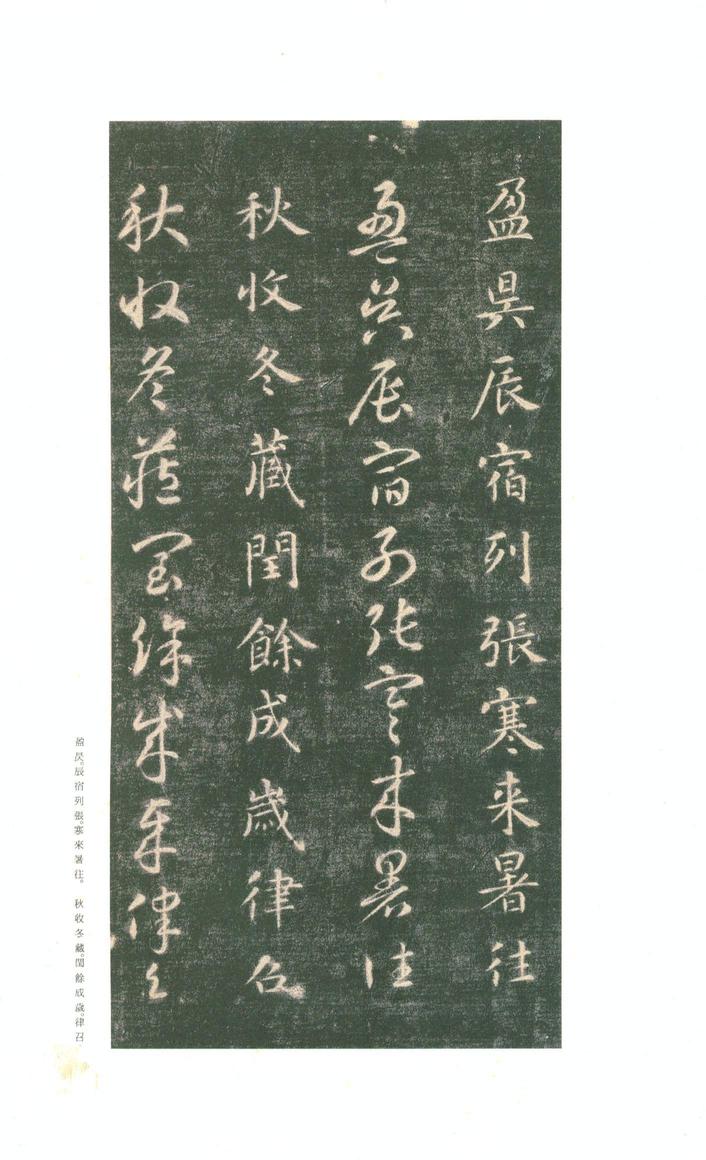 盈昃辰宿列張寒来暑往
盈昃辰宿列張寒来暑往
秋收冬蔵閏餘成歲律召
秋收冬蔵閏餘成歲律召
盈昃。辰宿列張。寒來暑往。 秋收冬藏。閏餘成歲。律召